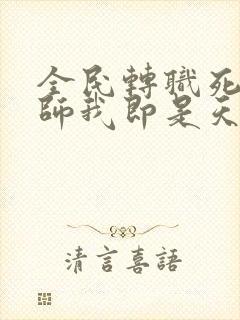 全民轉職死
師我即是天
清言喜語